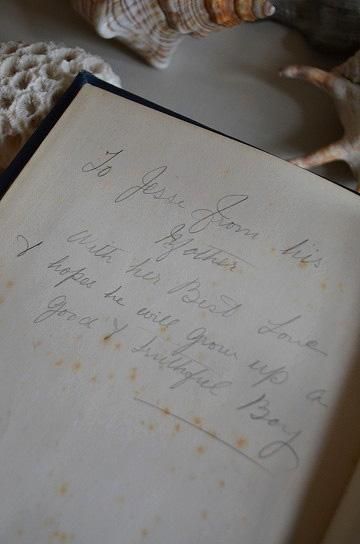 To Jesse from his
Mother
With her Best Love
& hopes he will grow up a
Good & truthful Boy